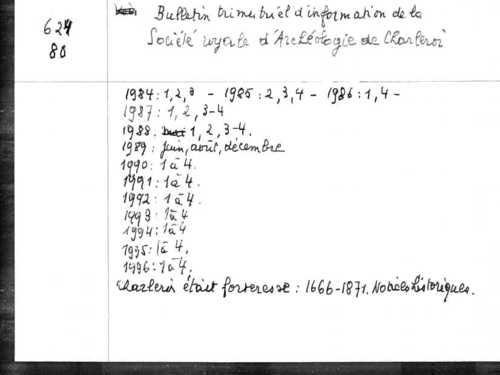 627 Bulletin trimestriel d'information de la
80 Société royale d'Archéologie de Charleroi
1984 : 1, 2, 3 - 1985 : 2, 3, 4 - 1986 : 1, 4 -
1987 : 1, 2, 3-4
1988. 1, 2, 3-4.
1989 : juin, août, décembre
1990 : 1 à 4.
1991 : 1 à 4.
1992 : 1 à 4.
1993 : 1 à 4
1994 : 1 à 4
1995 : 1 à 4.
1996 : 1 à 4.
Charleroi était forteresse : 1666-1871. Notices historiques.